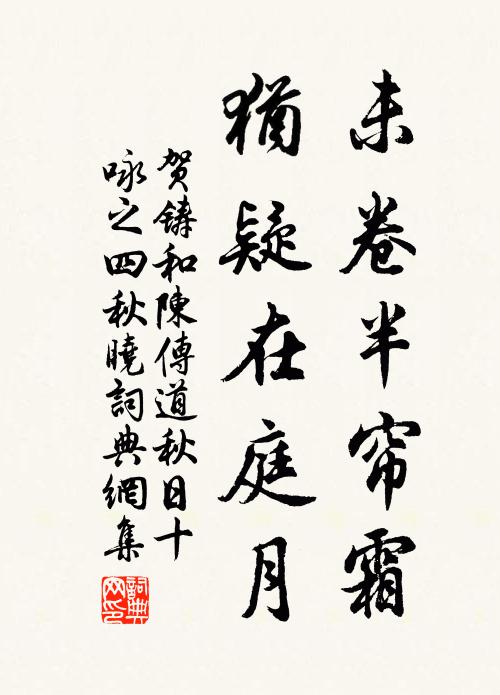 未卷半帘霜
猶疑在庭月
贺鑄和陳傳道秋日十
咏之四秋曉詞典網集
詞典
网印